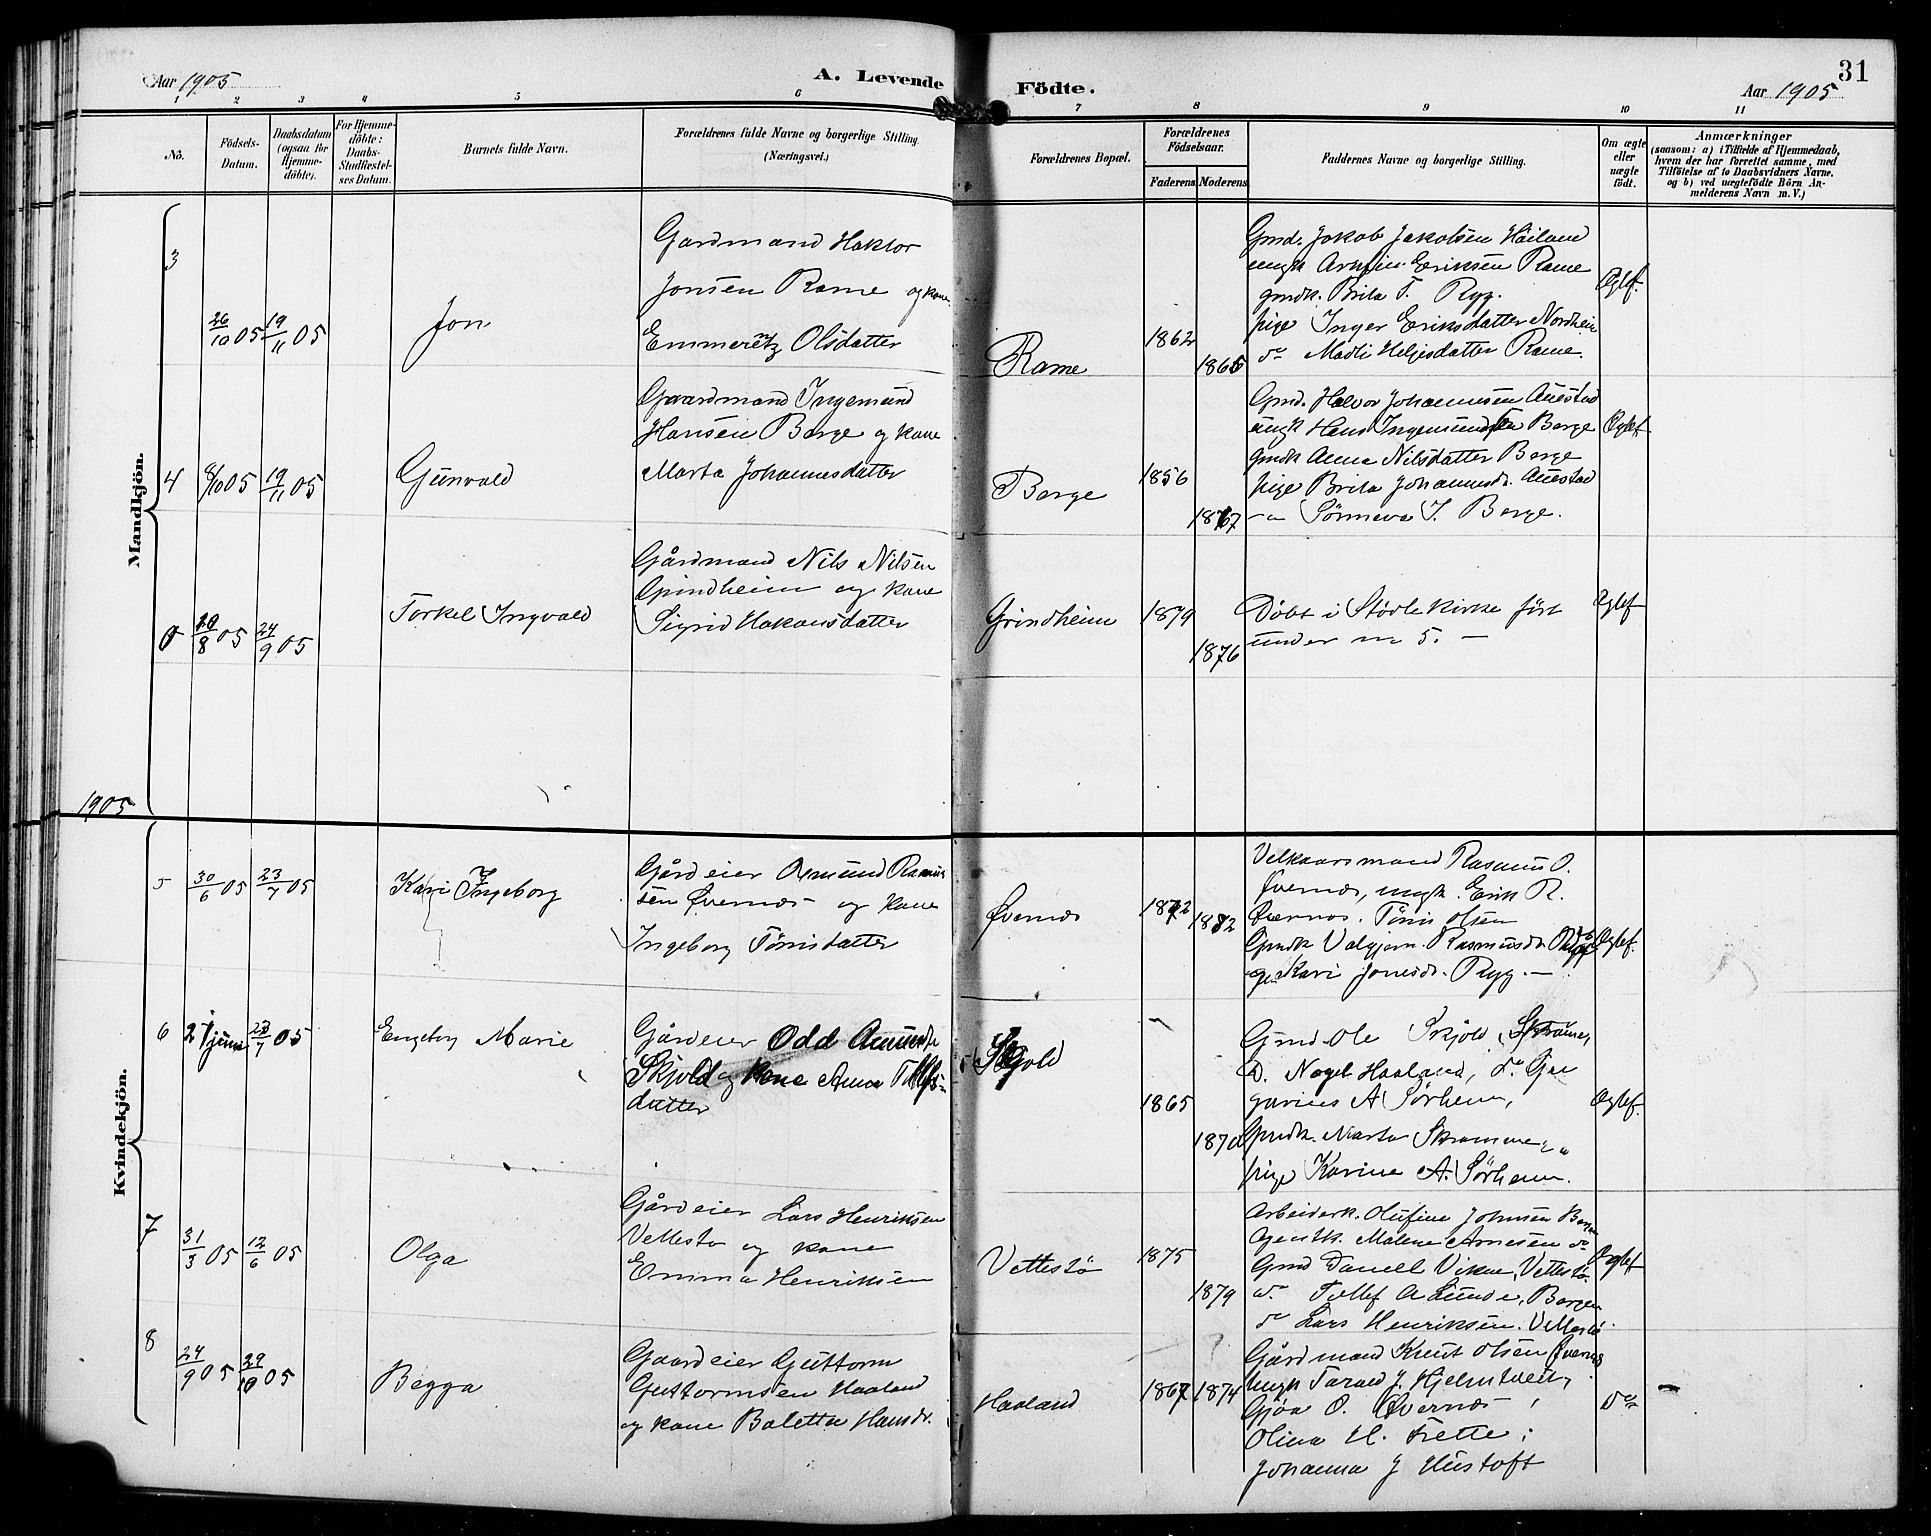 Aar 1905
A. Levende Födte.
Aar 1905
31
1 2 3 4 5 6 7 8 9 10 11
Nö.
Födsels-
Datum.
Daabsdatum
(ogsaa for
Hjemme-
döbte).
For Hjemme-
döbte:
Daabs-
Stadfæstel-
ses Datum.
Barnets fulde Navn.
Forældrenes fulde Navne og borgerlige Stilling.
(Næringsvei.)
Forældrenes Bopæl.
Forældrenes
Födselsaar.
Faderens. Moderens.
Faddernes Navne og borgerlige Stilling.
Om ægte
eller
uægte
födt.
Anmærkninger
(saasom: a) i Tilfælde af Hjemmedaab,
hvem der har forrettet samme, med
Tilföielse af to Daabsvidners Navne.
og b) ved uægtefödte Börn An-
melderens Navn m. V.)
Mandkjön.
3
26/10 05 19/11 05
Jon
Gardmand Haktor
Jonsen Rame og kone
Emmeretz Olsdatter
Rame
1862
1865
Gmd. Jakob Jakobsen Håiland
ungk Arnfin Eriksen Rame
gmdk. Brita T. Ryg.
pige Inger Eriksdatter Nordheim
do Madli Heljesdatter Rame.
Ægtef.
4
8/10 05 19/11 05
Gunvald
Gaardmand Ingemund
Hansen Berge og kone
Marta Johannesdatter
Berge
1856
1867
Gmd. Halvor Johannesen Auestad
ungk Hans Ingemundsen Berge
gmdk Anna Nilsdatter Berge
pige Brita Johannesd. Auestad
Sørineva I. Berge.
Ægtef
0
20/8 05 24/9 05
Torkel Ingvald
Gårdmand Nils Nilsen
Grindheim og kone
Sigrid Hakonsdatter
Grindheim
1879
1876
Døbt i Stødle kirke ført
under no 5. —
Ægtef
1905
Kvindekjön.
5
30/6 05 23/7 05
Kari Ingeborg
Gårdeier Osmund Rasmus
sen Øvernæs og kone
Ingeborg Tønisdatter
Øvernæs
1872
1882
Velkaarsmand Rasmus O.
Øvernæs, ungk. Erik R.
Øvernæs. Tønis Olsen
Gmdk Valgjerm. Rasmusdr.
Kari Jonesd. Ryg. —
Ægtef.
6
juni 23/7 05
Engeborg Marie
Gårdeier Odd
Skjold og kone Anna
datter
Skjold
1865
1870
Gmd. Ole Skjold,
D. Nagel Haaland, do
A Sørheim,
Gmdk. Marta
pige Karine A. Sørheim.
Ægtef.
7
31/3 05 12/6 05
Olga
Gårdeier Lars Henriksen
Vettestø og kone
Emma Henriksen
Vettestø
1875
1879
Arbeiderk. Olufine Johnsen
Agentk. Malene Arnesen do
Gmd Daniel Vikne, Vettestø
do Tollef A Lunde, Bergen
do Lars Henriksen. Vettestø
Ægtef
8
24/9 05 29/10 05
Begga
Gaardeier Guttorm
Guttormsen Haaland
og kone Baletta Hansdr.
Haaland
1867
1874
Gårdmand Knut Olsen Øvernæs
Ungk Tarald J. Hjelmtveit,
Gjøa O. Øvernæs
Olina H. Trette;
Johanna J Hustoft
Do